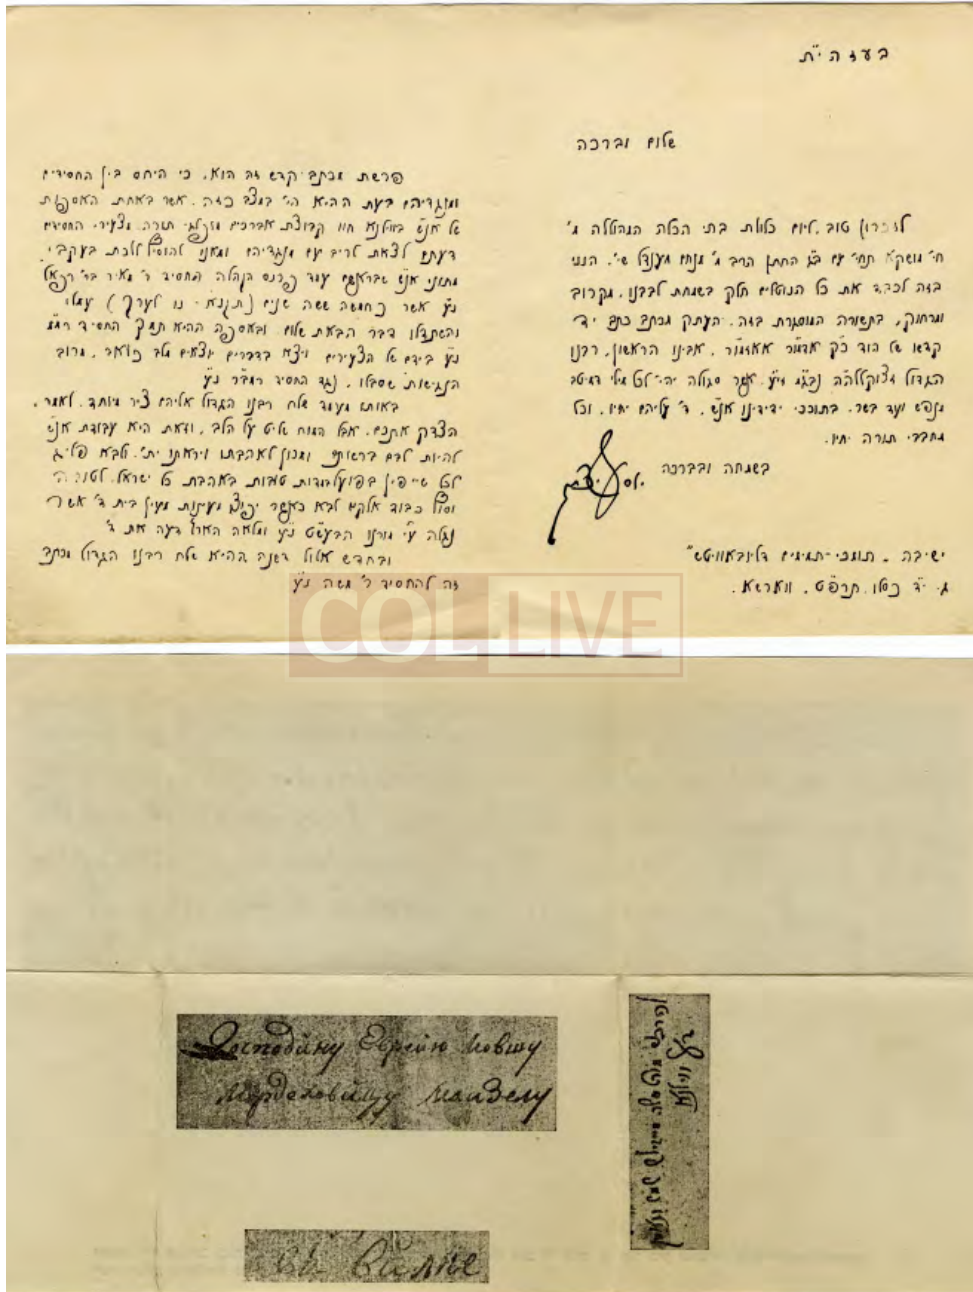 בעזה"ת
שלום וברכה
לזכרון טוב, ליום כלולת בתי הכלה המהוללה מ'
חי' מושקא תחי' עם ב"ג החתן הרב מ' מנחם מענדל שי', הנני
בזה לכבד את כל הנוטלים חלק בשמחת לבבנו, מקרוב
ומרחוק, בתשורה המוסגרת בזה. העתק מכתב כתב יד
קדשו של הוד כ"ק אדמו"ר אאזמו"ר, אבינו הראשון, רבנו
הגדול נבג"מ זי"ע. אשר סגולה יהי' לכל מילי דמיטב
מנפש ועד בשר, בתוככי ידידינו אנ"ש, ד' עליהם יחיו, וכל
מחבבי תורה יחיו.
בשמחה וברכה
ישיבה - תומכי-תמימים דליובאוויטש"
ג. י"ד כסלו תרפ"ט, ווארשא.
פרשת מכתב קדש זה הוא, כי היחס בין החסידים
ומנגדיהם בעת ההיא הי' במצב כזה, אשר באחת האספות
של אנ"ש בווילנא חוו קבוצת אברכים מופלגי תורה מצעירי החסידים
דעתם לצאת לריב עם מנגדיהם ומאנו להוסיף ללכת בעקבי
מתוני אנ"ש שבראשם עמד פרנס הקהלה החסיד ר' מאיר בר' רפאל
נ"ע אשר כחמשה ששה שנים (תקנא - נו לערך) עמלו
והשתדלו דבר הבאת שלום ובאספה ההיא תמך החסיד רמ"מ
נ"ע בידם של הצעירים ויצא בדברים יוצאים מלב כואב, מרוב
הנגישות שסבלו, נגד החסיד רמב"ר נ"ע
באותו מעמד שלח רבנו הגדול אליהם ציר מיוחד, לאמר,
הצדק אתכם, אבל המוח שליט על הלב, וזאת היא עבודת אנ"ש
להיות לבם ברשותם ומכון לאהבתו ויראתו ית', ולבא
בפועל ומדות טובות באהבת כל ישראל,
וסוף כבוד אלקים לבא כאשר יפוצו מעינות מעין בית ד' אשר
נגלה ע"י מורנו הבעש"ט נ"ע ומלאה הארץ דעה את ד'
ובחדש אלול דשנה ההיא שלח רבנו הגדול מכתב
זה להחסיד ר' משה נ"ע
COL LIVE
Господину Еврею Мовшу
Мордоховичу Маизелу
въ Вилне